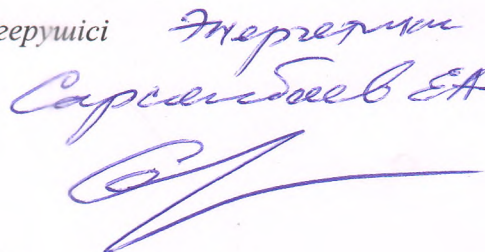 герушісі Энергетики
Сарсенбаев ЕА